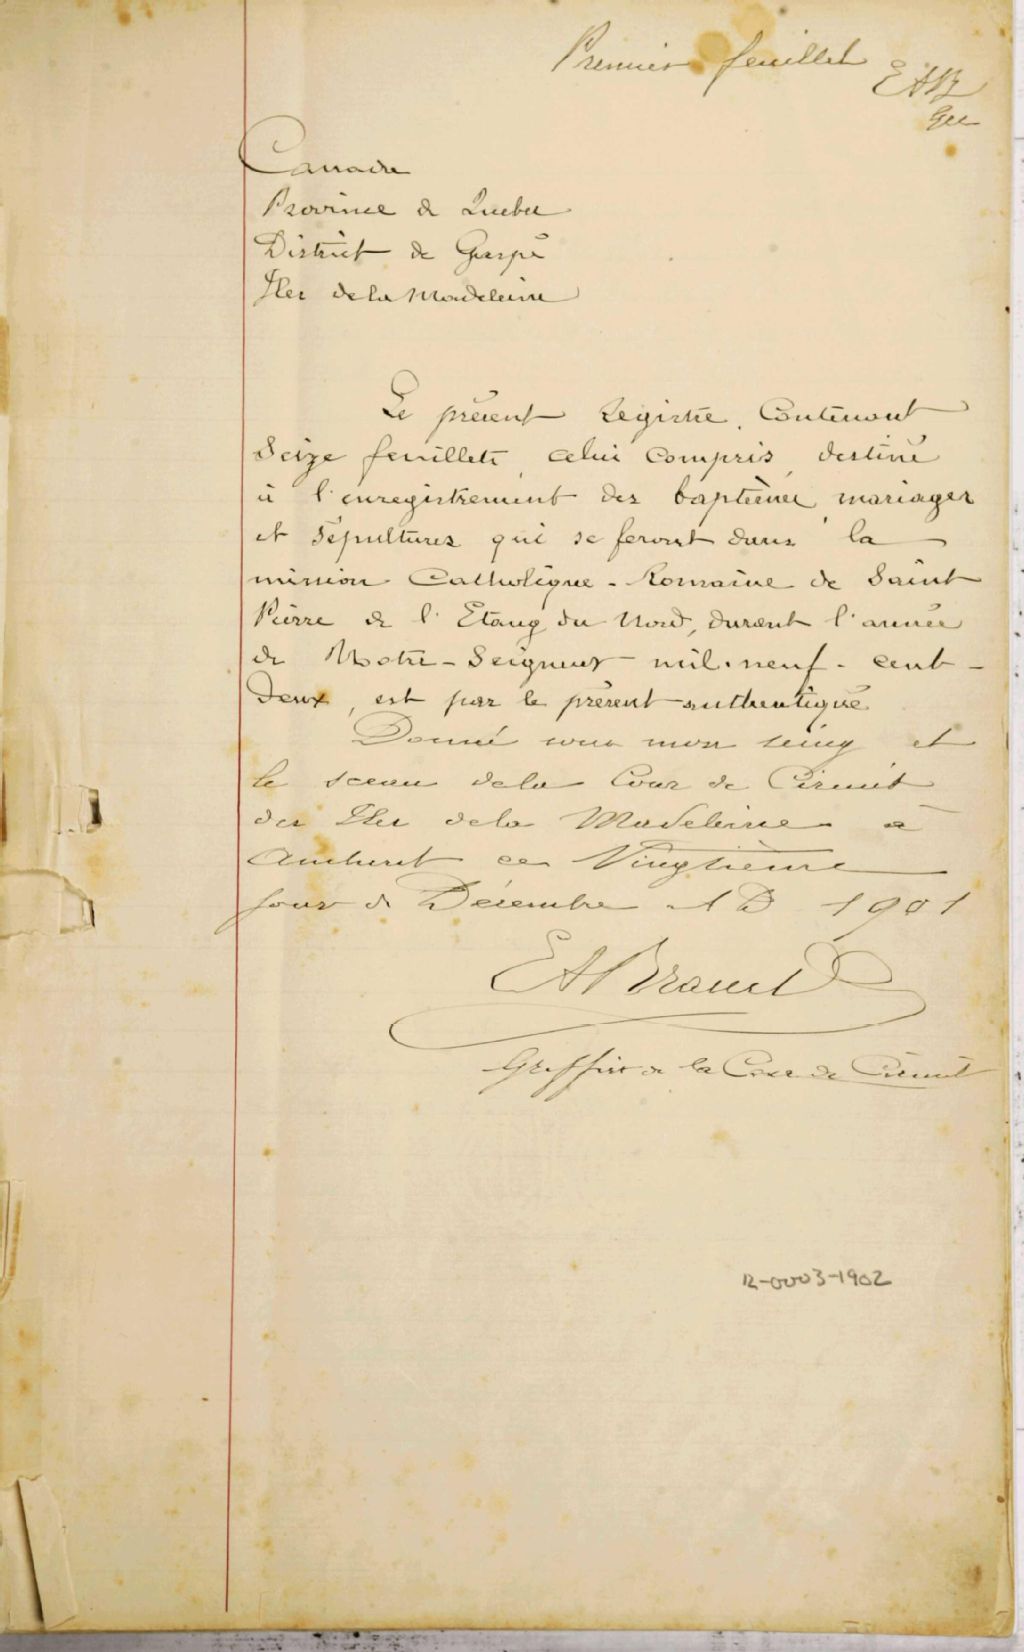 Premier feuillet
EAB
Gcc
Canada
Province de Quebec
District de Gaspé
Iles de la Madeleine
Le présent registre, contenant
seize feuillets, celui compris, destiné
à l'enregistrement des baptêmes, mariages
et sépultures qui se feront dans la
mission Catholique-Romaine de Saint
Pierre de l'Etang du Nord, durant l'année
de Notre-Seigneur mil-neuf-cent-
deux, est par le présent authentiqué
Donné sous mon seing et
le sceau de la Cour de Circuit
des Iles de la Madeleine à
Amherst ce Vingtième
jour de Décembre A D 1901
EA Br
Greffier de la Cour de Circuit
12-0003-1902